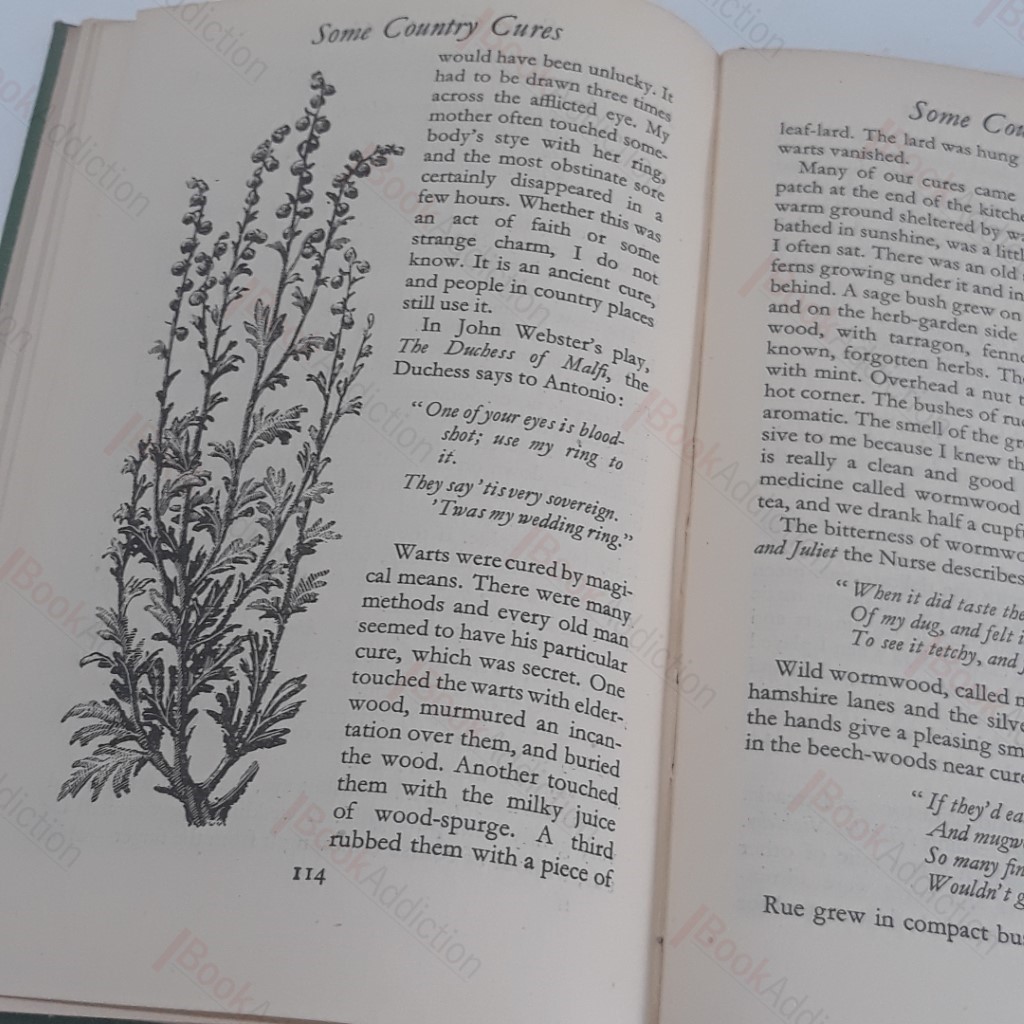 Some Country Cures
would have been unlucky. It
had to be drawn three times
across the afflicted eye. My
mother often touched some-
body's stye with her ring,
and the most obstinate sore
certainly disappeared in a
few hours. Whether this was
an act of faith or some
strange charm, I do not
know. It is an ancient cure,
and people in country places
still use it.
In John Webster's play,
The Duchess of Malfi, the
Duchess says to Antonio:
"One of your eyes is blood-
shot; use my ring to
it.
They say 'tis very sovereign.
'Twas my wedding ring."
Warts were cured by magi-
cal means. There were many
methods and every old man
seemed to have his particular
cure, which was secret. One
touched the warts with elder-
wood, murmured an incan-
tation over them, and buried
the wood. Another touched
them with the milky juice
of wood-spurge. A third
rubbed them with a piece of
114
Some
leaf-lard. The lard was hung
warts vanished.
Many of our cures came
patch at the end of the
warm ground sheltered by
bathed in sunshine, was a
I often sat. There was an old
ferns growing under it and in
behind. A sage bush grew on
and on the herb-garden side
wood, with tarragon,
known, forgotten herbs.
with mint. Overhead a nut
hot corner. The bushes of
aromatic. The smell of the
sive to me because I knew
is really a clean and good
medicine called wormwood
tea, and we drank half a
The bitterness of
and Juliet the Nurse describes
"When it did taste
Of my dug, and felt
To see it tetchy, and
Wild wormwood, called
hamshire lanes and the
the hands give a pleasing
in the beech-woods near
"If they'd
And
So many
Wouldn't
Rue grew in compact
BookAddiction